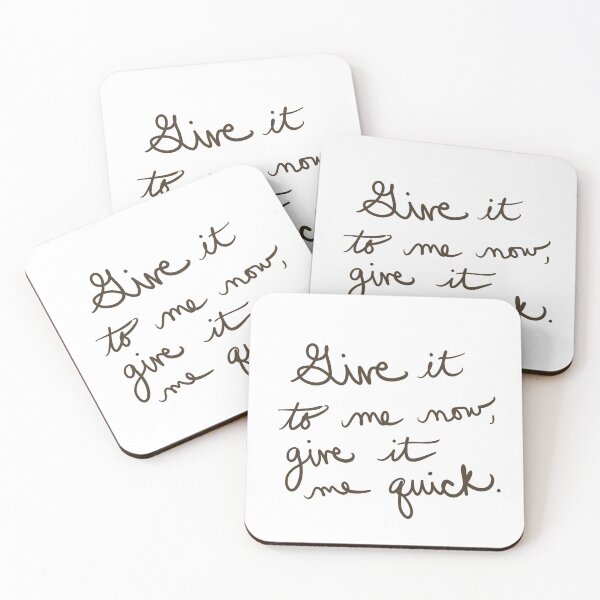 Give it
to now
Give it
to me now,
give it
Give it
to me now,
give it
me
Give it
to me now,
give it
me quick.